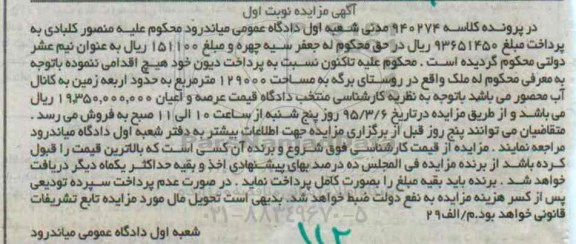 آگهی مزایده نوبت اول
در پرونده کلاسه ۹۴۰۲۷۴ مدنی شعبه اول دادگاه عمومی میاندرود محکوم علیه منصور کلبادی به
پرداخت مبلغ ۹۳۶۵۱۴۵۰ ریال در حق محکوم له جعفر سیه چهره و مبلغ ۱۵۱۱۰۰ ریال به عنوان نیم عشر
دولتی محکوم گردیده است . محکوم علیه تاکنون نسبت به پرداخت دیون خود هیچ اقدامی ننموده باتوجه
به معرفی محکوم له ملک واقع در روستای برگه به مساحت ۱۲۹۰۰۰ مترمربع به حدود اربعه زمین به کانال
آب محصور می باشد باتوجه به نظریه کارشناسی منتخب دادگاه قیمت عرصه و اعیان ۱۹,۳۵۰,۰۰۰,۰۰۰ ریال
می باشد و از طریق مزایده درتاریخ ۹۵/۳/۶ روز پنج شنبه از ساعت ۱۰ الی ۱۱ صبح به فروش می رسد .
متقاضیان می توانند پنج روز قبل از برگزاری مزایده جهت اطلاعات بیشتر به دفتر شعبه اول دادگاه میاندرود
مراجعه نمایند . مزایده از قیمت کارشناسی فوق شروع و برنده آن کسی است که بالاترین قیمت را قبول
کرده باشد از برنده مزایده فی المجلس ده درصد بهای پیشنهادی اخذ و بقیه حداکثر یکماه دیگر دریافت
خواهد شد . برنده باید بقیه مبلغ را بصورت کامل پرداخت نماید . در صورت عدم پرداخت سپرده تودیعی
پس از کسر هزینه مزایده به نفع دولت ضبط خواهد شد. بدیهی است تحویل مال مورد مزایده تابع تشریفات
قانونی خواهد بود.م/الف۲۹
۰۲۱-۸۸۳۴۹۶۷۰-۵
شعبه اول دادگاه عمومی میاندرود
۱۱۲